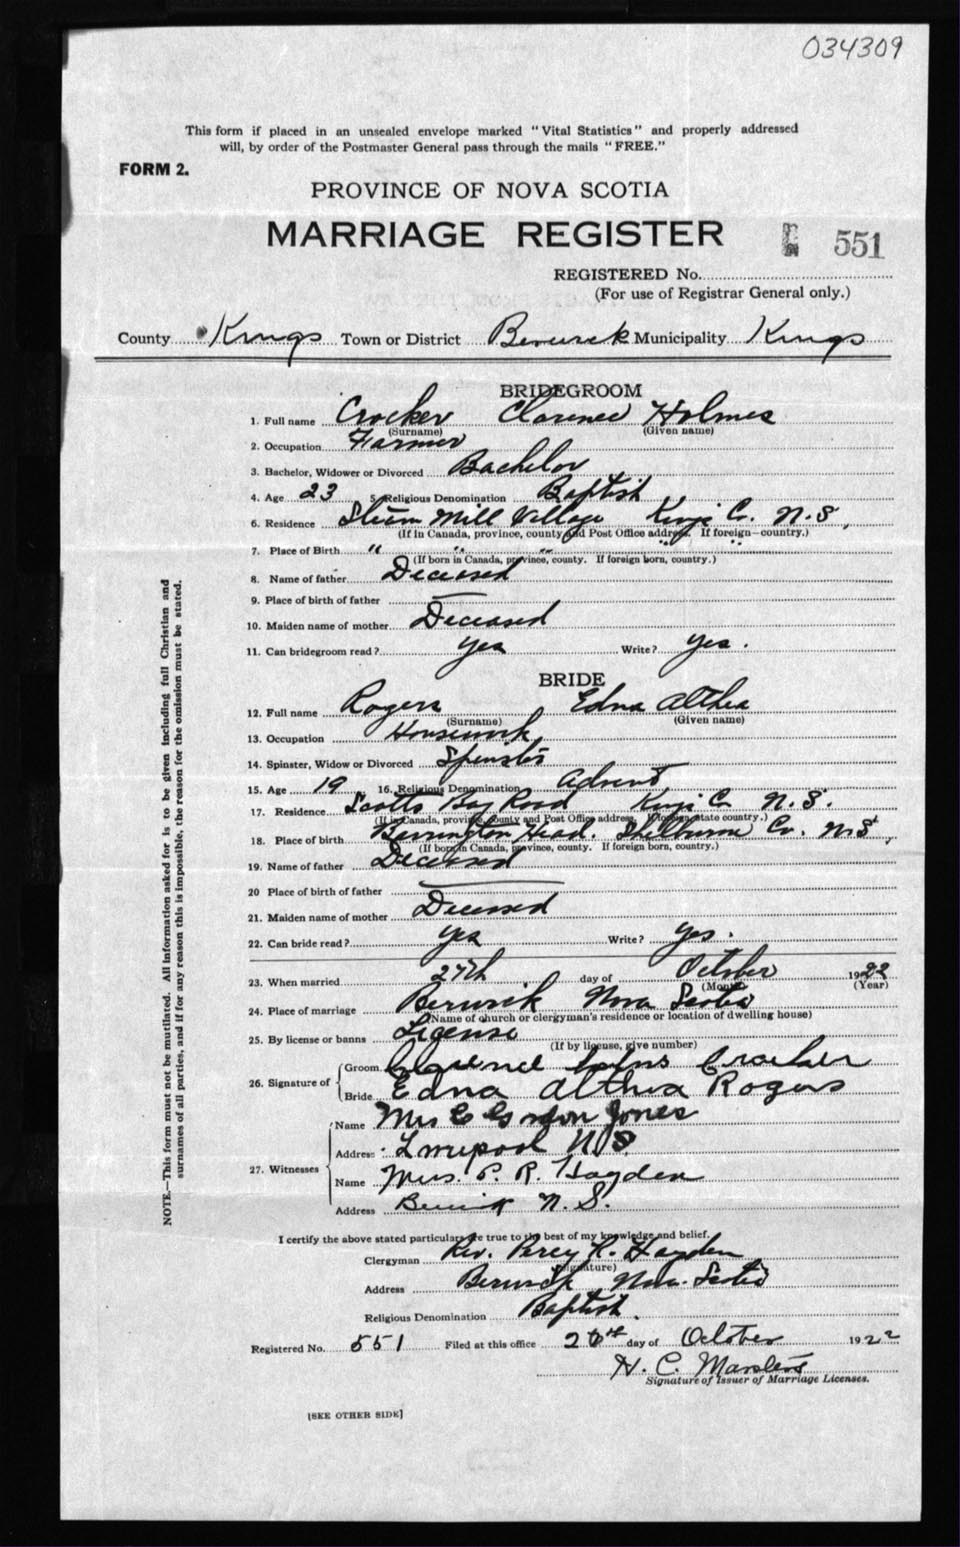 034309
This form if placed in an unsealed envelope marked "Vital Statistics" and properly addressed
will, by order of the Postmaster General pass through the mails "FREE."
FORM 2.
PROVINCE OF NOVA SCOTIA
MARRIAGE REGISTER
551
REGISTERED No.
(For use of Registrar General only.)
County Kings Town or District Berwick Municipality Kings
BRIDEGROOM
1. Full name Crocker Clarence Holmes
(Surname) (Given name)
2. Occupation Farmer
3. Bachelor, Widower or Divorced Bachelor
4. Age 23 5. Religious Denomination Baptist
6. Residence Steam Mill Village Kings Co. N.S.
(If in Canada, province, county and Post Office address. If foreign—country.)
7. Place of Birth " " " " "
(If born in Canada, province, county. If foreign born, country.)
8. Name of father Deceased
9. Place of birth of father
10. Maiden name of mother Deceased
11. Can bridegroom read? yes Write? yes.
BRIDE
12. Full name Rogers Edna Althea
(Surname) (Given name)
13. Occupation Housework
14. Spinster, Widow or Divorced Spinster
15. Age 19 16. Religious Denomination Advent
17. Residence Scotts Bay Road Kings Co N.S.
(If in Canada, province, county and Post Office address. If foreign state country.)
18. Place of birth Barrington Head. Shelburne Co. N.S,
(If born in Canada, province, county. If foreign born, country.)
19. Name of father Deceased
20 Place of birth of father
21. Maiden name of mother Deceased
22. Can bride read? yes Write? yes.
23. When married 27th day of October 1922
(Month) (Year)
24. Place of marriage Berwick Nova Scotia
(Name of church or clergyman's residence or location of dwelling house)
25. By license or banns License
(If by license, give number)
26. Signature of Groom Clarence Crocker
Bride Edna Althea Rogers
27. Witnesses Name Mrs C Gordon Jones
Address Liverpool N S
Name Mrs. P. R. Hayden
Address Berwick N. S.
I certify the above stated particulars are true to the best of my knowledge and belief.
Clergyman Rev. Percy R. Hayden
(Signature)
Address Berwick Nova Scotia
Religious Denomination Baptist.
Registered No. 551 Filed at this office day of October 1922
H. C.
Signature of Issuer of Marriage Licenses.
[SEE OTHER SIDE]
NOTE.—This form must not be mutilated. All information asked for is to be given including full Christian and
surnames of all parties, and if for any reason this is impossible, the reason for the omission must be stated.